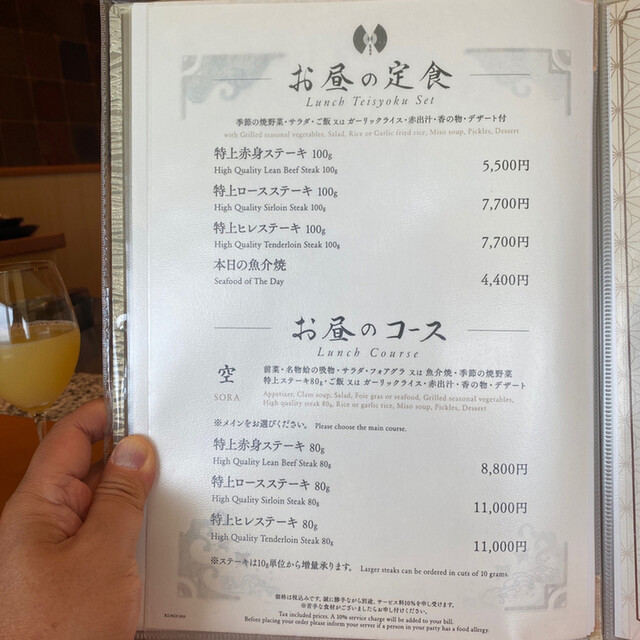 お昼の定食
Lunch Teisyoku Set
季節の焼野菜・サラダ・ご飯 又は ガーリックライス・赤出汁・香の物・デザート付
with Grilled seasonal vegetables, Salad, Rice or Garlic fried rice, Miso soup, Pickles, Dessert
特上赤身ステーキ 100g
High Quality Lean Beef Steak 100g
5,500円
特上ロースステーキ 100g
High Quality Sirloin Steak 100g
7,700円
特上ヒレステーキ 100g
High Quality Tenderloin Steak 100g
7,700円
本日の魚介焼
Seafood of The Day
4,400円
お昼のコース
Lunch Course
空
SORA
前菜・名物蛤の吸物・サラダ・フォアグラ 又は 魚介焼・季節の焼野菜
特上ステーキ80g・ご飯 又は ガーリックライス・赤出汁・香の物・デザート
Appetizer, Clam soup, Salad, Foie gras or seafood, Grilled seasonal vegetables,
High quality steak 80g, Rice or garlic rice, Miso soup, Pickles, Dessert
※メインをお選びください。 Please choose the main course.
特上赤身ステーキ 80g
High Quality Lean Beef Steak 80g
8,800円
特上ロースステーキ 80g
High Quality Sirloin Steak 80g
11,000円
特上ヒレステーキ 80g
High Quality Tenderloin Steak 80g
11,000円
※ステーキは10g単位から増量承ります。 Larger steaks can be ordered in cuts of 10 grams.
価格は税込みです。誠に勝手ながら別途、サービス料10%を申し受けます。
※苦手な食材がございましたらお申し付けください。
Tax included prices. A 10% service charge will be added to your bill.
Before placing your order please inform your server if a person in your party has a food allergy